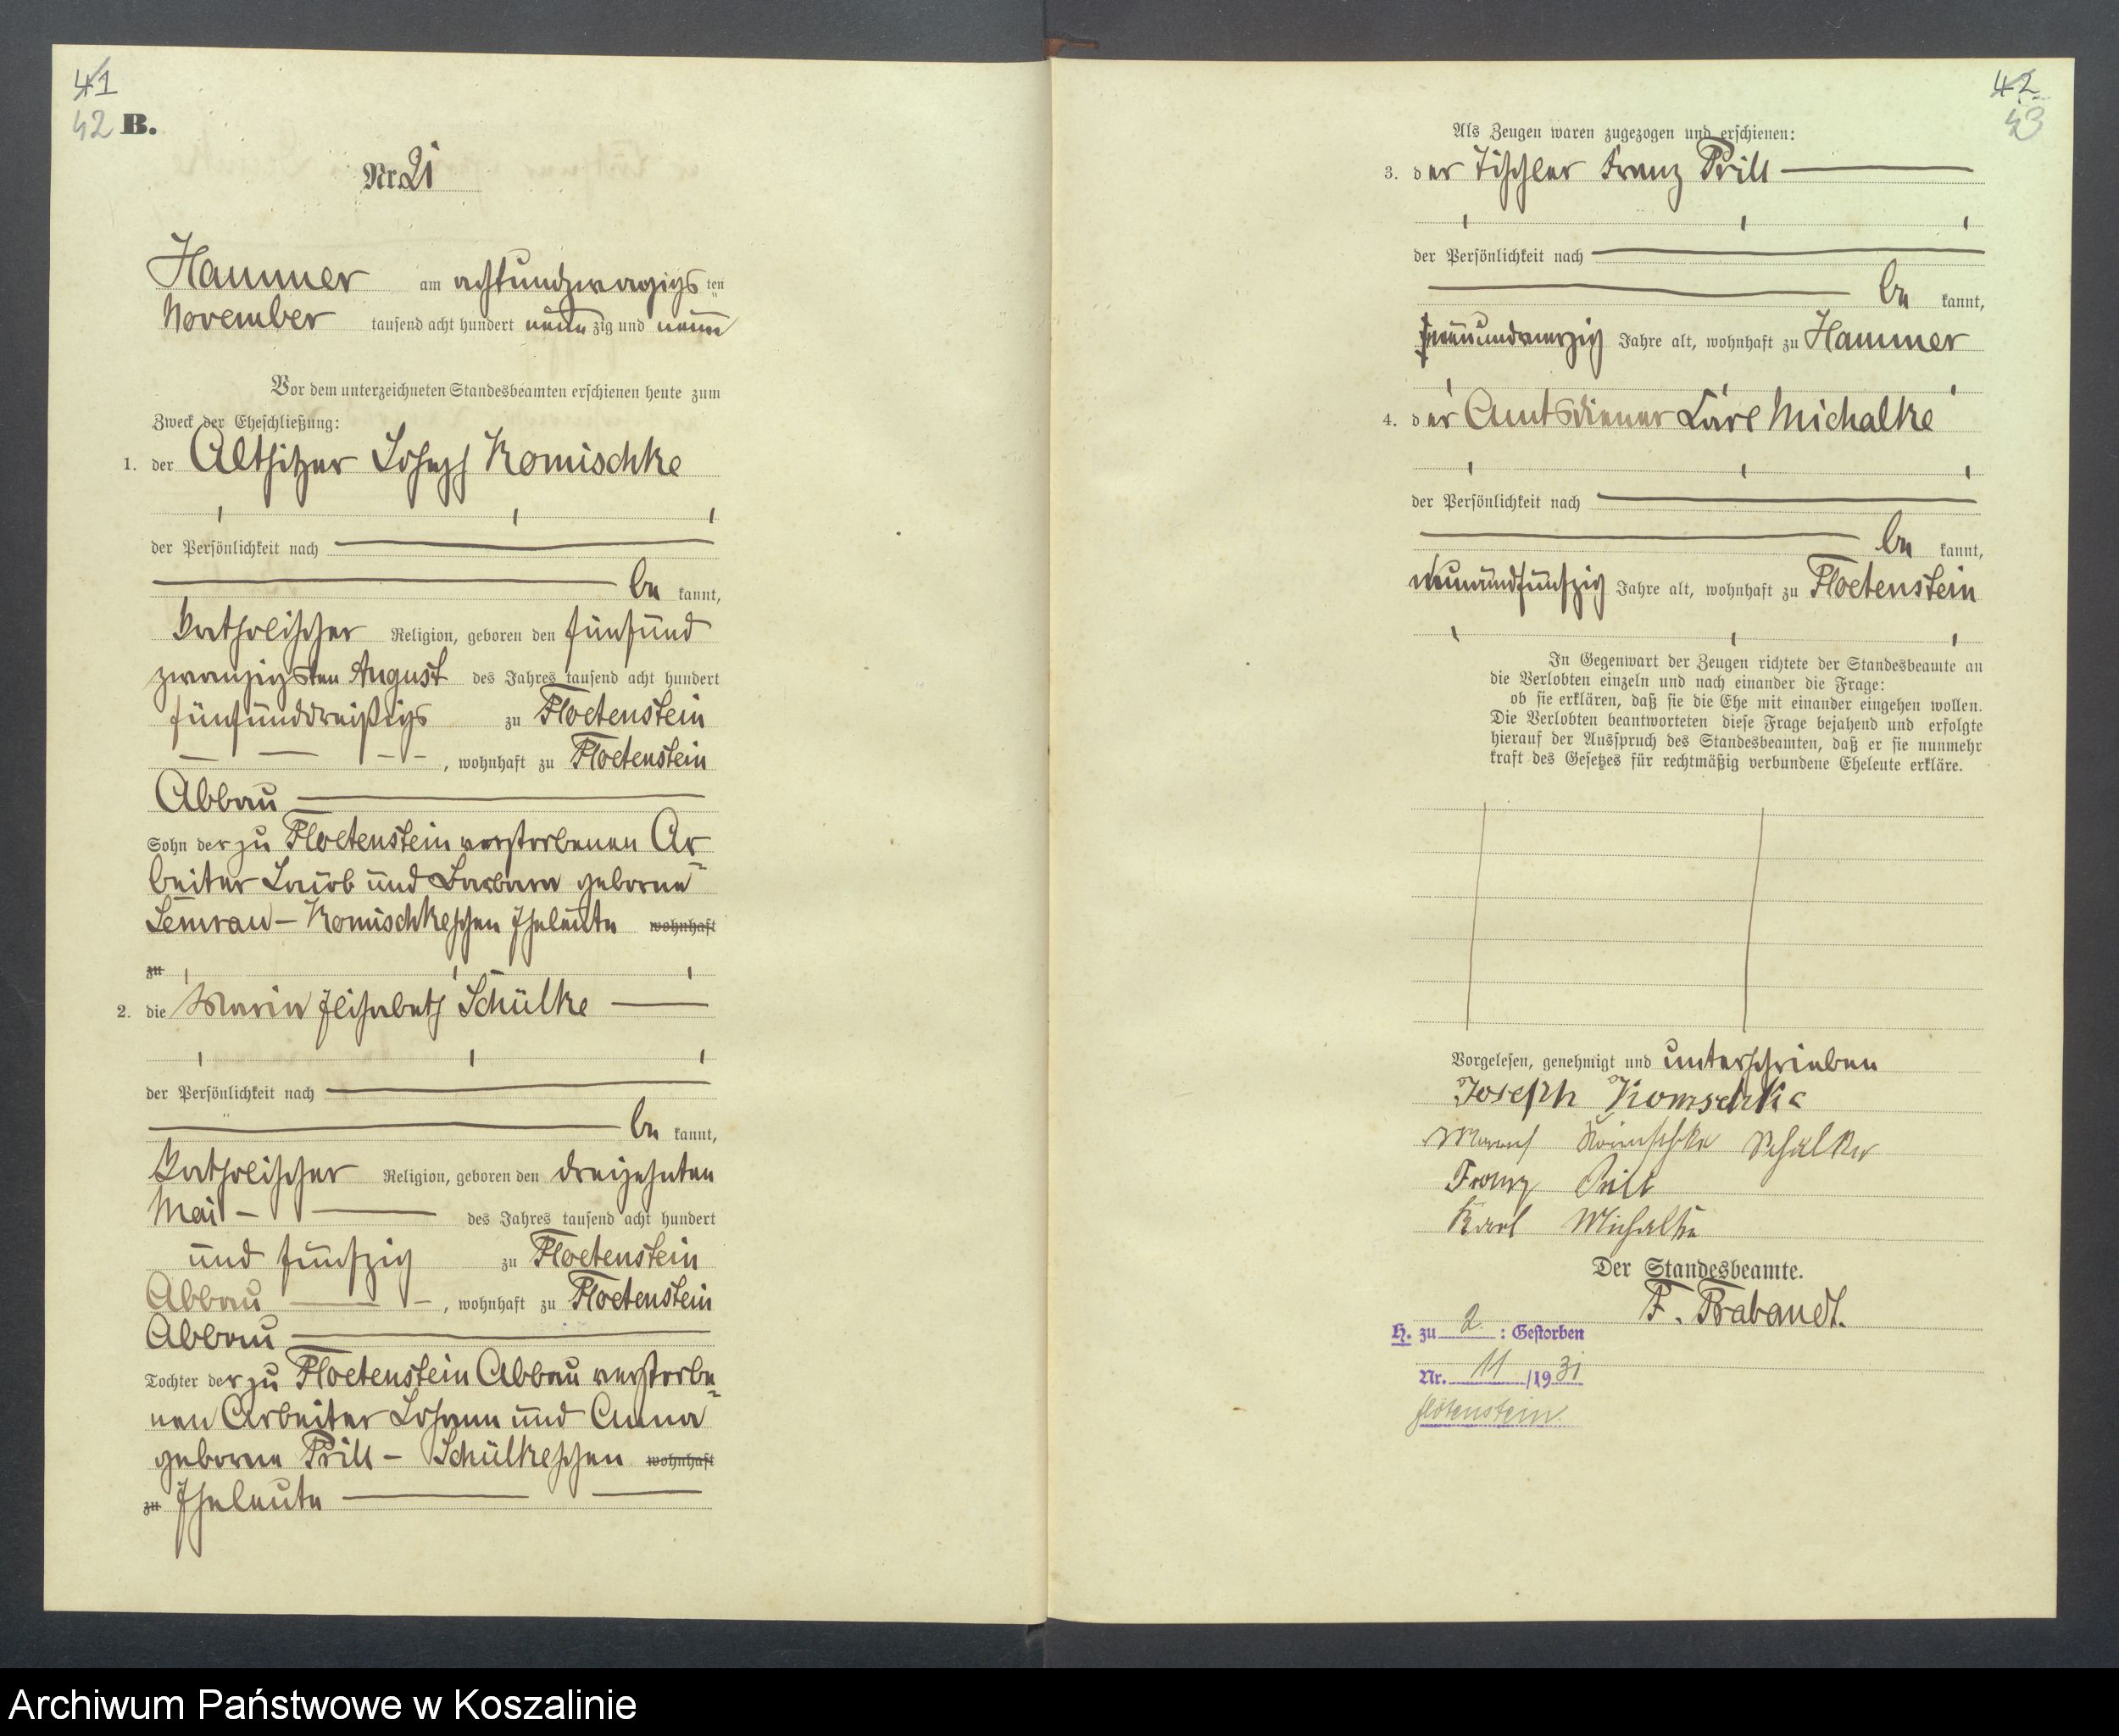 41
42 B.
Nr. 21
Hammer am achtundzwazigs ten
November tausend acht hundert neun zig und neun
Vor dem unterzeichneten Standesbeamten erschienen heute zum
Zweck der Eheschließung:
1. der Altsitzer Joseph Komischke
der Persönlichkeit nach
be kannt,
katholischer Religion, geboren den fünfund
zwanzigsten August des Jahres tausend acht hundert
fünfunddreißigs zu Floetenstein
, wohnhaft zu Floetenstein
Abbau
Sohn der zu Floetenstein verstorbenen Ar-
beiter Jacob und Barbara geborne
Semrau - Komischkeschen Eheleute wohnhaft
zu
2. die Maria Elisabeth Schülke
der Persönlichkeit nach
be kannt,
katholischer Religion, geboren den dreizehnten
Mai des Jahres tausend acht hundert
und fünfzig zu Floetenstein
Abbau , wohnhaft zu Floetenstein
Abbau
Tochter der zu Floetenstein Abbau verstorbe-
nen Arbeiter Johann und Anna
geborne Prill - Schülkeschen wohnhaft
zu Eheleute
42
43
Als Zeugen waren zugezogen und erschienen:
3. der Tischler Franz Prill
der Persönlichkeit nach
be kannt,
neunundvierzig Jahre alt, wohnhaft zu Hammer
4. der Amtsdiener Carl Michalke
der Persönlichkeit nach
be kannt,
neunundfünfzig Jahre alt, wohnhaft zu Floetenstein
In Gegenwart der Zeugen richtete der Standesbeamte an
die Verlobten einzeln und nach einander die Frage:
ob sie erklären, daß sie die Ehe mit einander eingehen wollen.
Die Verlobten beantworteten diese Frage bejahend und erfolgte
hierauf der Ausspruch des Standesbeamten, daß er sie nunmehr
kraft des Gesetzes für rechtmäßig verbundene Eheleute erkläre.
Vorgelesen, genehmigt und unterschrieben
Joseph Komschke
Schülke
Franz Prill
Karl Michalke
Der Standesbeamte.
F. Brabandt.
H. zu 2. : Gestorben
Nr. 11 /19 31
Flötenstein
Archiwum Państwowe w Koszalinie